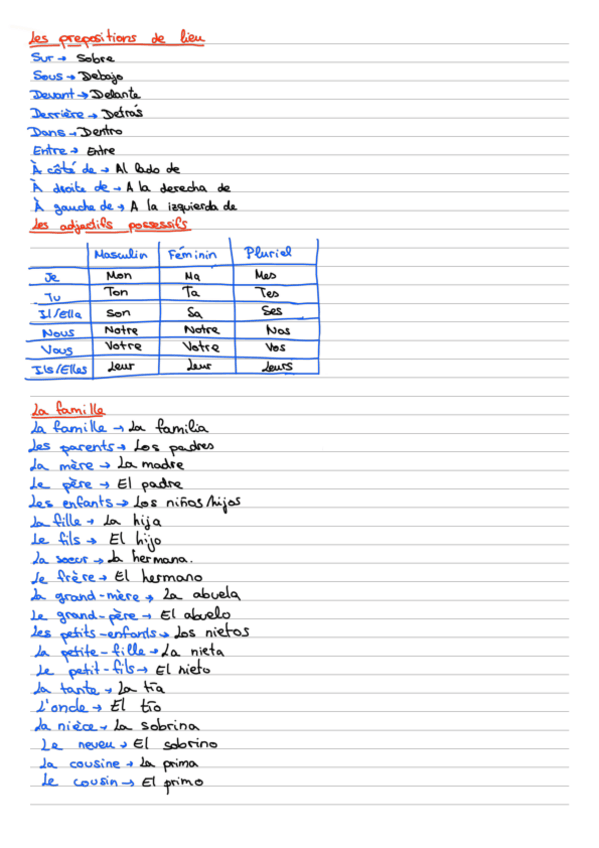 Les prepositions de lieu
Sur → Sobre
Sous → Debajo
Devant → Delante
Derrière → Detrás
Dans → Dentro
Entre → Entre
À côté de → Al lado de
À droite de → A la derecha de
À gauche de → A la izquierda de
Les adjectifs possessifs
Masculin Féminin Pluriel
Je Mon Ma Mes
Tu Ton Ta Tes
Il/ella Son Sa Ses
Nous Notre Notre Nos
Vous Votre Votre Vos
Ils/Elles Leur Leur Leurs
La famille
La famille → La familia
Les parents → Los padres
La mère → La madre
Le père → El padre
Les enfants → Los niños/hijos
La fille → La hija
Le fils → El hijo
La sœur → La hermana.
Le frère → El hermano
La grand-mère → La abuela
Le grand-père → El abuelo
Les petits-enfants → Los nietos
La petite-fille → La nieta
Le petit-fils → El nieto
La tante → La tía
L'oncle → El tío
La nièce → La sobrina
Le neveu → El sobrino
La cousine → La prima
Le cousin → El primo